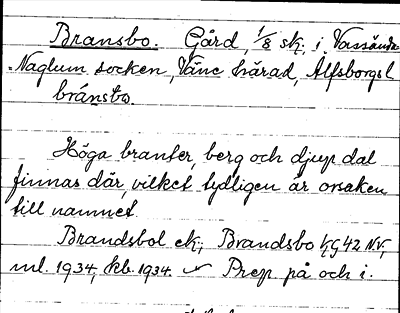 Bransbo. Gård, 1/8 sk, i Vassända
Naglum socken, Väne härad, Älfsborgs l
bránsbo.
Höga branter, berg och djup dal
finnas där, vilket tydligen är orsaken
till namnet.
Brandsbol ek; Brandsbo
ml. 1934, kb. 1934. Prep. på och i.